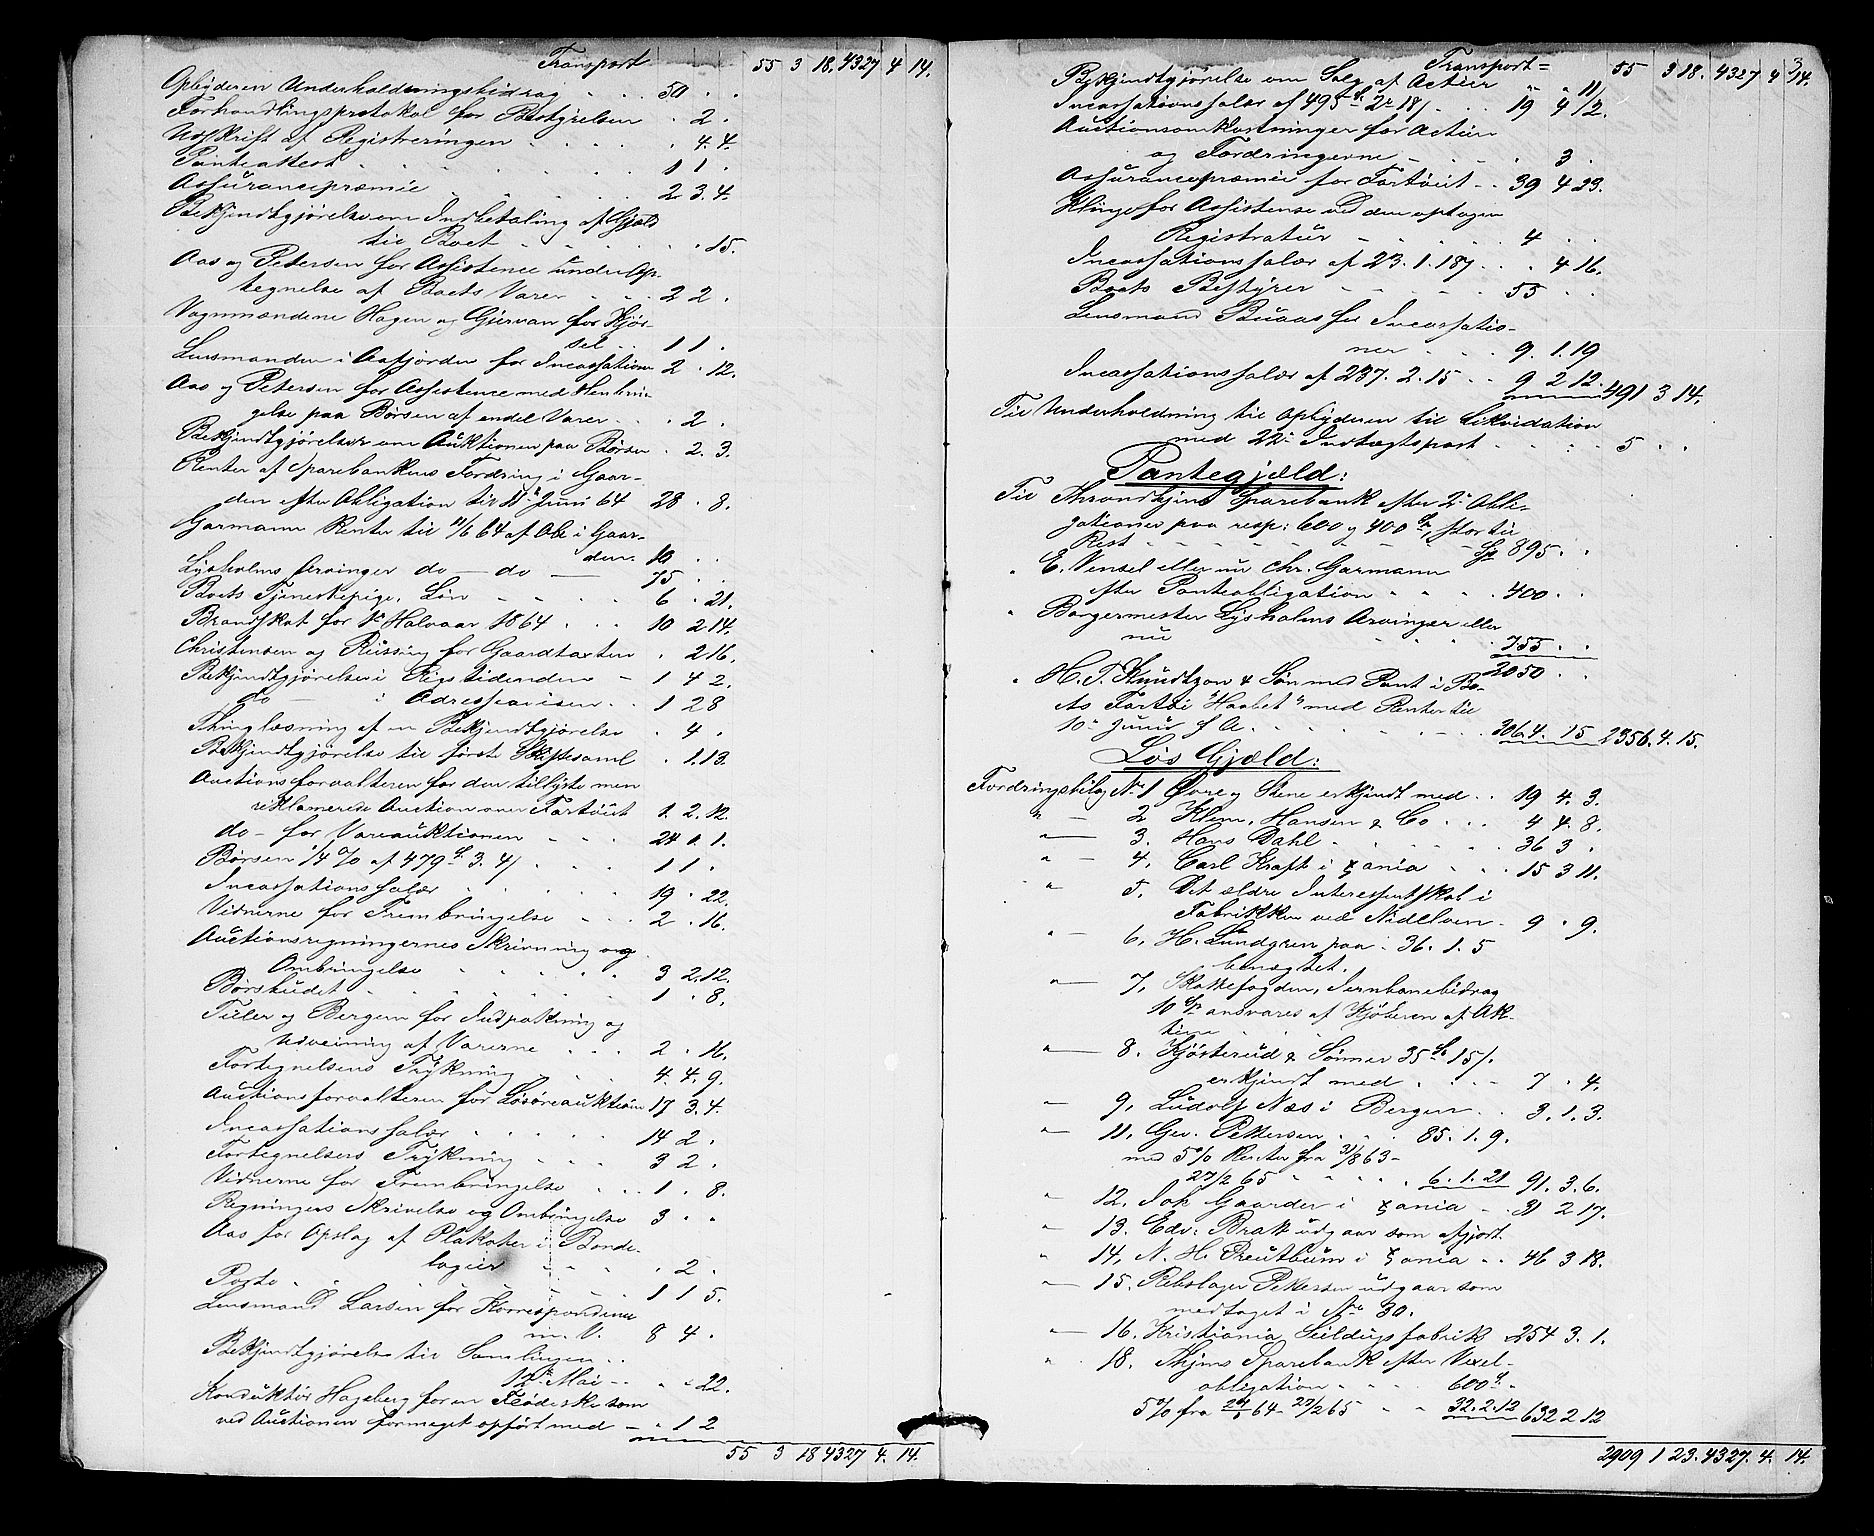 Transport 55 3 18. 4327 4 14.
Opbyderen Underholdningsbidrag . . . 50 . .
Forhandlingsprotokol for Bestyrelsen . 2 .
Udskrift af Registreringen . . . . 4. 4.
Panteattest . . . . . 1 1 .
Assurancepræmie . . . . 2 3. 4.
Bekjendtgjørelse om Indbetaling af Gjæld
til Boet . . . . . . 15.
Aas og Petersen for Assistence under Op-
tegnelse af Boets Varer . . . 2 2 .
Vognmændene Hagen og Gjervan for Kjør-
sel . . 1 1 .
Lensmanden i Aafjorden for Incassation 2 . 12.
Aas og Petersen for Assistence med Henbrin-
gelse paa Børsen af endel Varer . . . 2 .
Bekjendtgjørelser om Auktionen paa Børsen . 2. 3.
Renter af Sparebankens Fordring i Gaar-
den efter Obligation til 11te Juni 64 28 . 8.
Garmann Renter til 11/6 64 af Obl. i Gaar-
den. 10 . .
Lysholms Arvinger do — do — 75 . .
Boets Tjenestepige, Løn . . . . 6 . 21.
Brandskat for 1te Halvaar 1864 . . . 10 2 14.
Christensen og Rüssing for Gaardtaxten . 2 16.
Bekjendtgjørelse i Rigstidenden — 1 4 2.
do — i Adresseavisen . . 1 2 8
Thinglæsning af en Bekjendtgjørelse . 4 .
Bekjendtgjørelse til første Skiftesaml . 1. 13.
Auctionsforvalteren for den tillyste men
reklamerede Auction over Fartøiet 1. 2. 12.
do — for Vareauktionen . . . 24 . 1.
Børsen 1/4 % af 479 Sp. 3. 4/ . . . 1 1 .
Incassationssalær . . . . 19 . 22.
Vidnerne for Frembringelse . . . 2 . 16.
Auctionsregningernes Skrivning og
Ombringelse . . . . . 3 2. 12.
Børsbudet . . . . . . 1 . 8.
Feiler og Bergem for Indpakning og
Udveining af Varerne . . . 2 . 16.
Fortegnelsens Trykning . . . . 4. 4. 9.
Auctionsforvalteren for Løsøreauktion 17 3. 4.
Incassationssalær . . . . . 14 2 .
Fortegnelsers Trykning . . . 3 2 .
Vidnerne for Frembringelse . . . 1 . 8.
Regningers Skrivelse og Ombringelse 3 . .
Aas for Opslag af Plakater i Bonde-
logier . . . . . 2 .
Porto . . . . . . 1 1 5.
Lensmand Larsen for Korrespondence
m. V. 8 4 .
Bekjendtgjørelse til Samlingen . .
12te Mai . . . . 22.
Konduktør Hageberg for en Flødeske som
ved Auctionen formeget opført med — . 1 2
55 3 18 4327 4. 14.
Transport = 55 3 18. 4327 4 14.
Bekjendtgjørelse om Salg af Actier . . 11/
Incassationssalær af 495 Sp. 2 18/ . . . 19 4 1/2.
Auctionsomkostninger for Actien
og Fordringerne . . . . . 3 .
Assurancepræmie for Fartøiet . . 39 4 23.
Klinge for Assistense ved den optagen
Registratur . . . . . 4 . .
Incassationssalær af 23. 1. 18/ . . . 4 16.
Boets Bestyrer . . . . . 55 . .
Lensmand Buaas for Incassatio-
ner . . . 9. 1. 19
Incassationssalær af 237. 2. 15 . . 9 2 12. 491 3 14.
Til Underholdning til Opbyderen til Likvidation
med 22de Indtægtspost . . . . 5 . .
Pantegjæld:
Til Throndhjems Sparebank efter 2de Obli-
gationer paa resp: 600 og 400 Sp, stor til
Rest . . . . . . Sp 895. .
" E. Vensel eller nu Chr. Garmann
efter Panteobligation . . . 400 . .
" Borgermester Lysholms Arvinger eller
nu . . . 755 . .
2050 . .
" H. T. Knudtzon & Søn med Pant i Bo-
ets Fartøi "Haabet" med Renter til
10de Junii f A. . . . . . . 306. 4. 15 2356. 4. 15.
Løs Gjæld:
Fordringsbilag No 1 Øvre og Stene erkjendt med . . 19 4. 3.
" — 2 Klem, Hansen & Co . . . 4 4. 8.
" — 3. Hans Dahl . . . . 36 3 .
" — 4. Carl Kraft i Xania . . . 15 3 11.
" 5. Det ældre Interessentskab i
Fabrikken ved Nidelven . 9 . 9.
" — 6. H. Lundgren paa . 36. 1. 5
benægtet.
" — 7. Skattefogden, Jernbanebidrag
10 Sp ansvares af Kjøberen af Ak-
tierne
" — 8. Kjøsterud & Sønner 35 Sp. 15/.
erkjendt med . . . 7 . 4.
" — 9. Ludolf Næs i Bergen . . 3. 1. 3.
" — 11. Gev. Pettersen . . . 85. 1. 9.
med 5% Renter fra 31/8 63 –
27/2 65 . . . . 6. 1. 21 91. 3. 6.
" 12. Joh Gaarder i Xania . . 31 2 17.
" — 13. Edv. Brak udgaar som afgjort
" 14. N. H. Preutbum i Xania . . 46 3 18.
" — 15. Rebslager Pettersen udgaar som
medtaget i No 30.
— 16. Kristiania Seildugsfabrik 254 3. 1.
" 18. Thjems Sparebank efter Vexel-
obligation . . . . 600 Sp. .
5% fra 64 – 27/2 65 . . 32. 2. 12 632 2 12
2909 1 23. 4327. 4. 14.